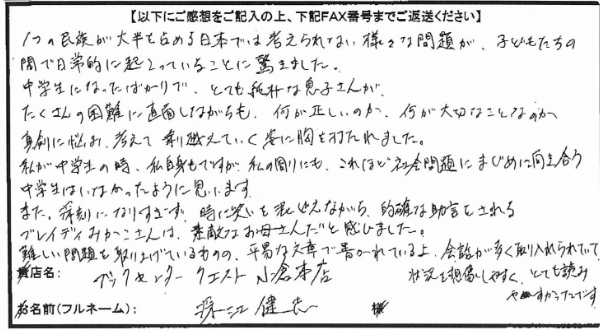 【以下にご感想をご記入の上、下記FAX番号までご返送ください】
1つの民族が大半を占める日本では考えられない様々な問題が、子どもたちの
間で日常的に起こっていることに驚きました。
中学生になったばかりで、とても純朴な息子さんが、
たくさんの困難に直面しながらも、何が正しいのか、何が大切なことなのか
真剣に悩み、考えて乗り越えていく姿に胸を打たれました。
私が中学生の時、私自身もですが、私の周りにも、これほど社会問題にまじめに向き合う
中学生はいなかったように思います。
また、深刻になりすぎず、時に笑いを混じえながら、的確な助言をされる
ブレイディみかこさんは、素敵なお母さんだと感じました。
難しい問題を取り上げているものの、平易な文章で書かれている上、会話が多く取り入れられていて、
状況を想像しやすく、とても読み
やすかったです
貴店名： ブックセンタークエスト小倉本店
お名前(フルネーム)： 江 健 様